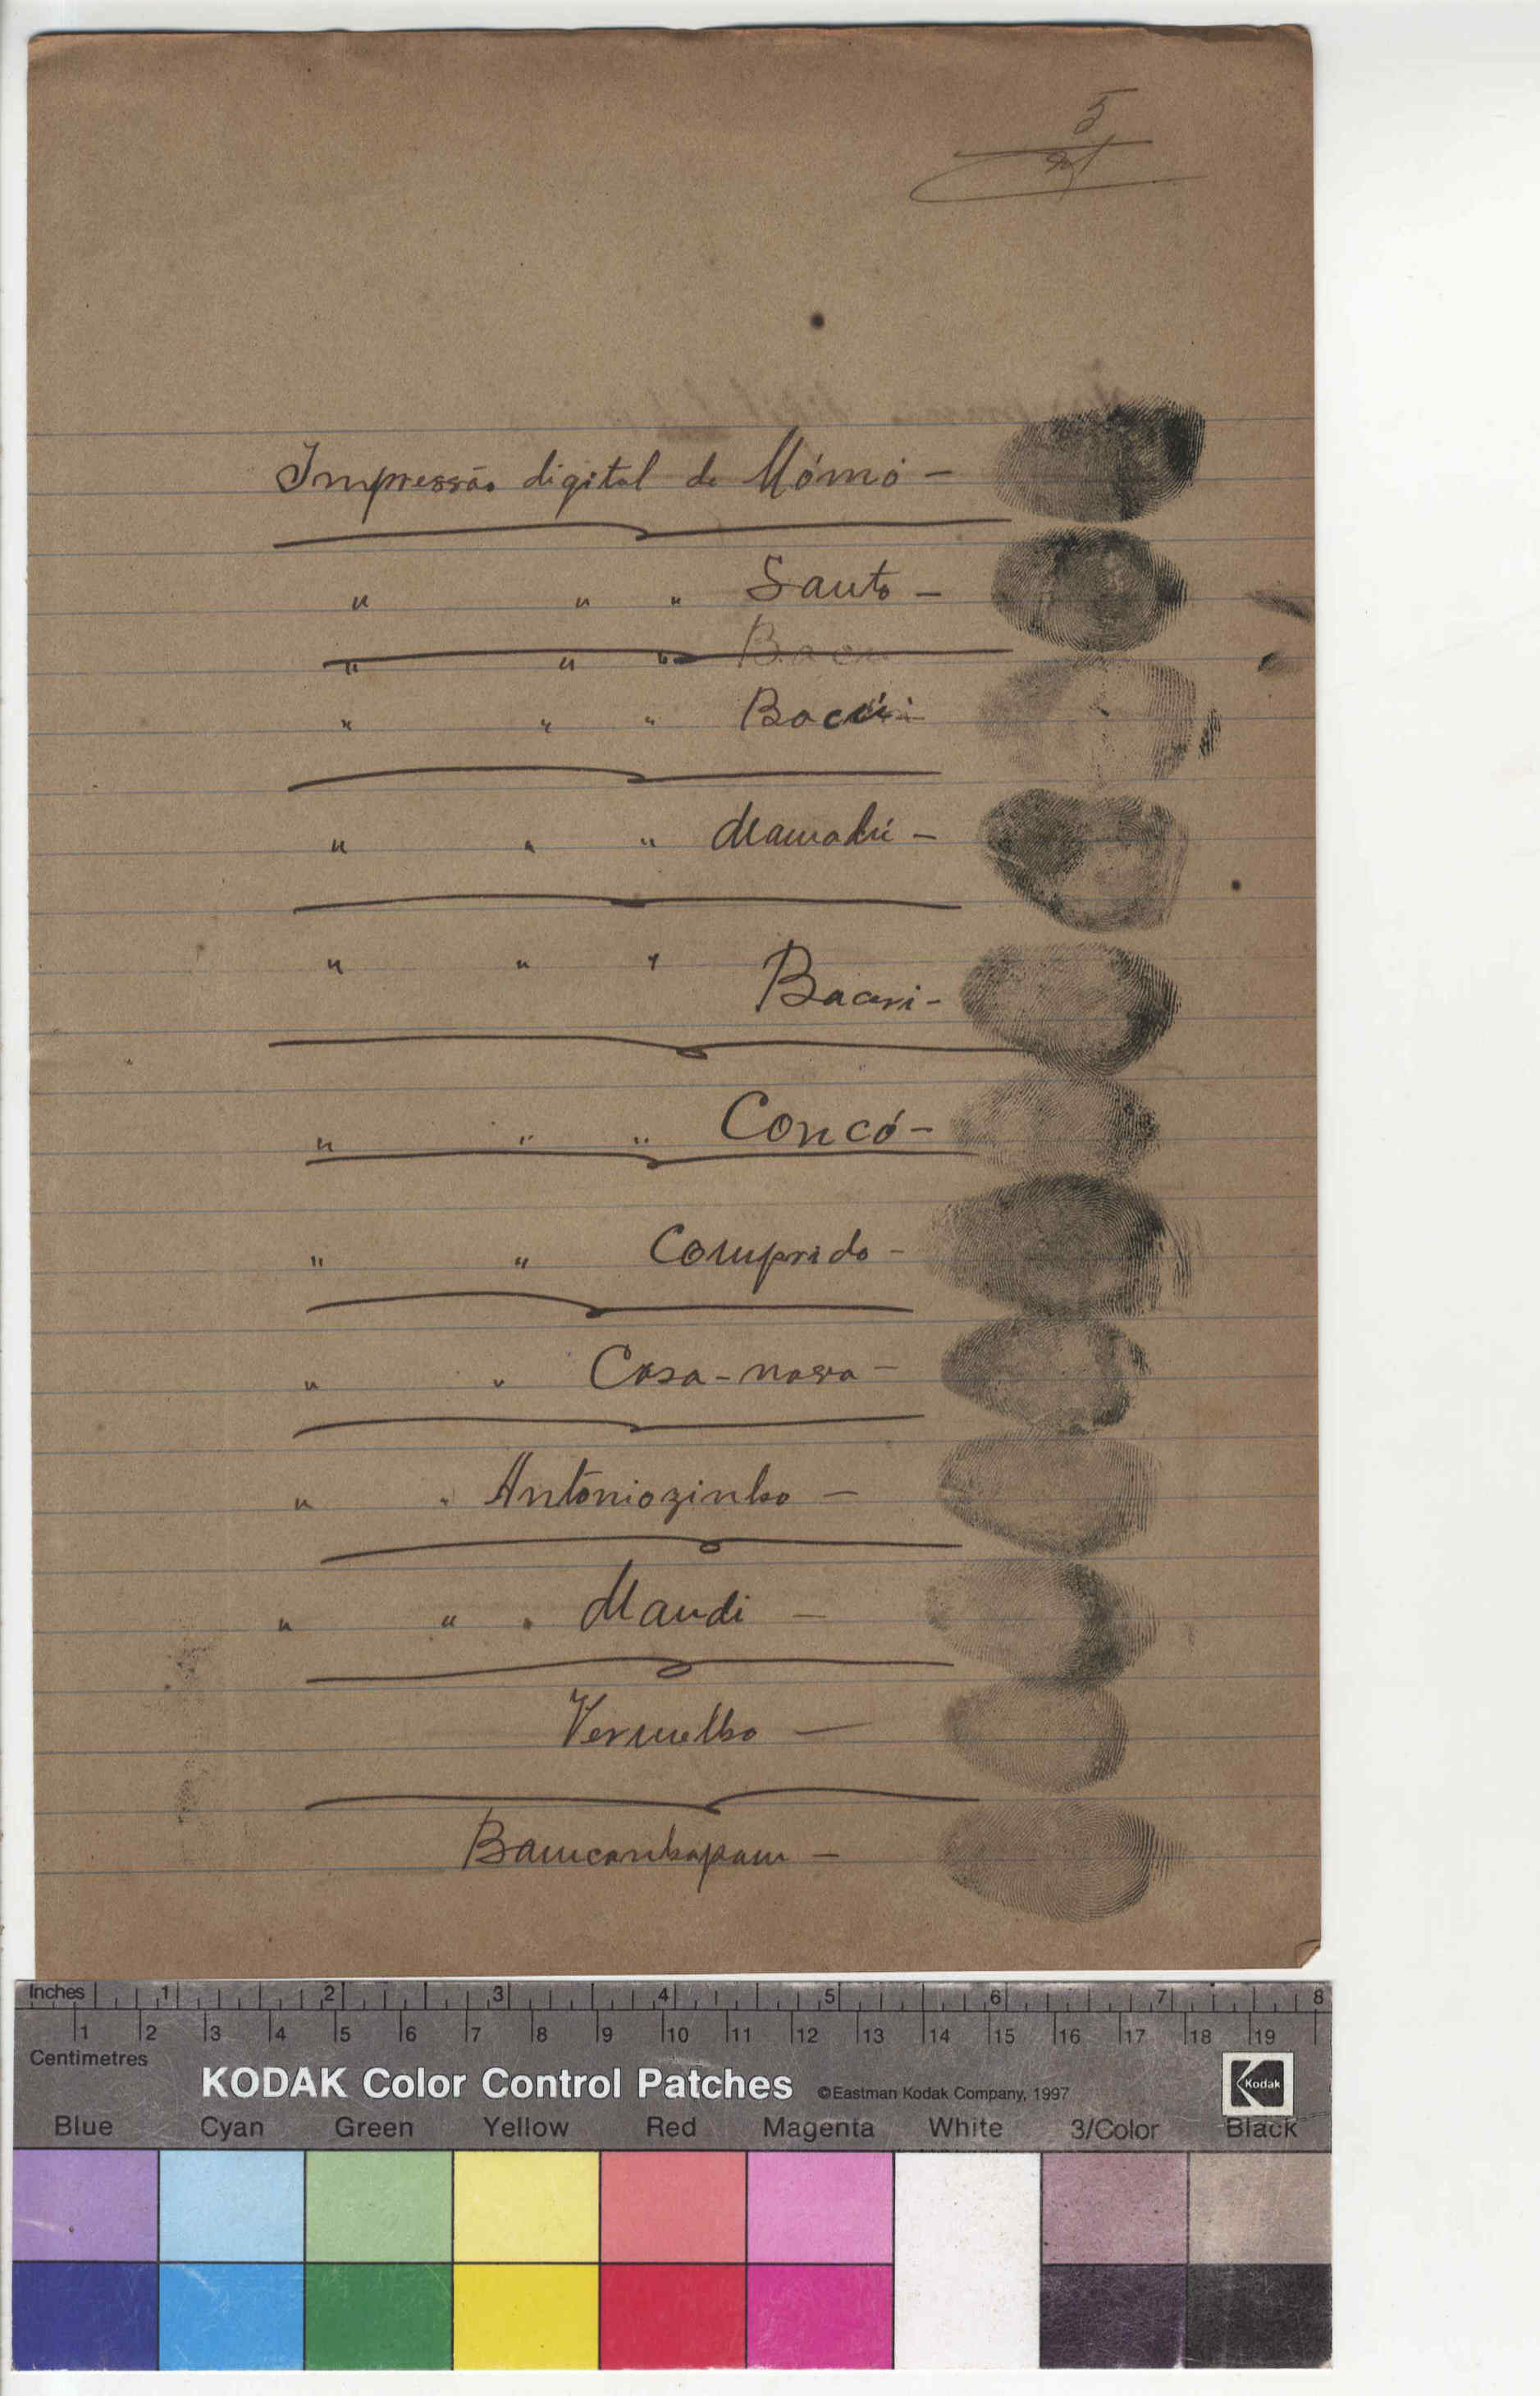 5
Impressão digital de Mómó —
" " " Santo —
" " "
" " "
" " " Mamadú —
" " " Bacari -
" " " Concó -
" " Comprido -
" " Casa-nova -
" " Antoniozinho —
" " " Mandi —
Vermelho —
Inches 1 2 3 4 5 6 7 8
1 2 3 4 5 6 7 8 9 10 11 12 13 14 15 16 17 18 19
Centimetres
KODAK Color Control Patches ©Eastman Kodak Company, 1997 Kodak
Blue Cyan Green Yellow Red Magenta White 3/Color Black